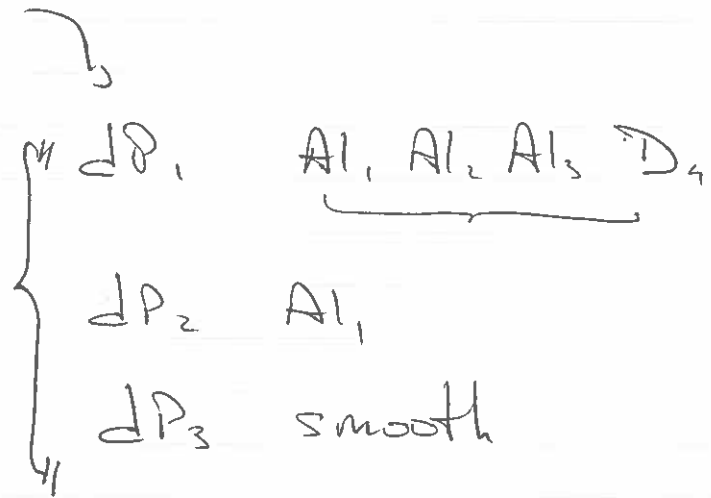 dP₁ Al₁ Al₂ Al₃ D₄
dP₂ Al₁
dP₃ smooth